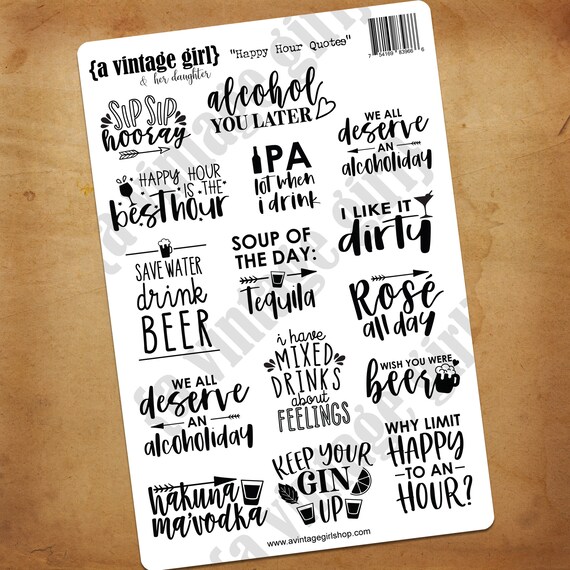 {a vintage girl}
& her daughter
"Happy Hour Quotes"
7 54169 83966 6
SIP SIP
hooray
alcohol
YOU LATER
WE ALL
deserve
AN
alcoholiday
HAPPY HOUR
IS THE
best hour
IPA
lot when
i drink
I LIKE IT
dirty
SAVE WATER
drink
BEER
SOUP OF
THE DAY:
Tequila
Rosé
all day
WE ALL
deserve
AN
alcoholiday
i have
MIXED
DRINKS
about
FEELINGS
WISH YOU WERE
beer
hakuna
ma'vodka
KEEP YOUR
GIN
UP
WHY LIMIT
HAPPY
TO AN
HOUR?
www.avintagegirlshop.com
{a vintage girl}
{a vintage girl}
{a vintage girl}